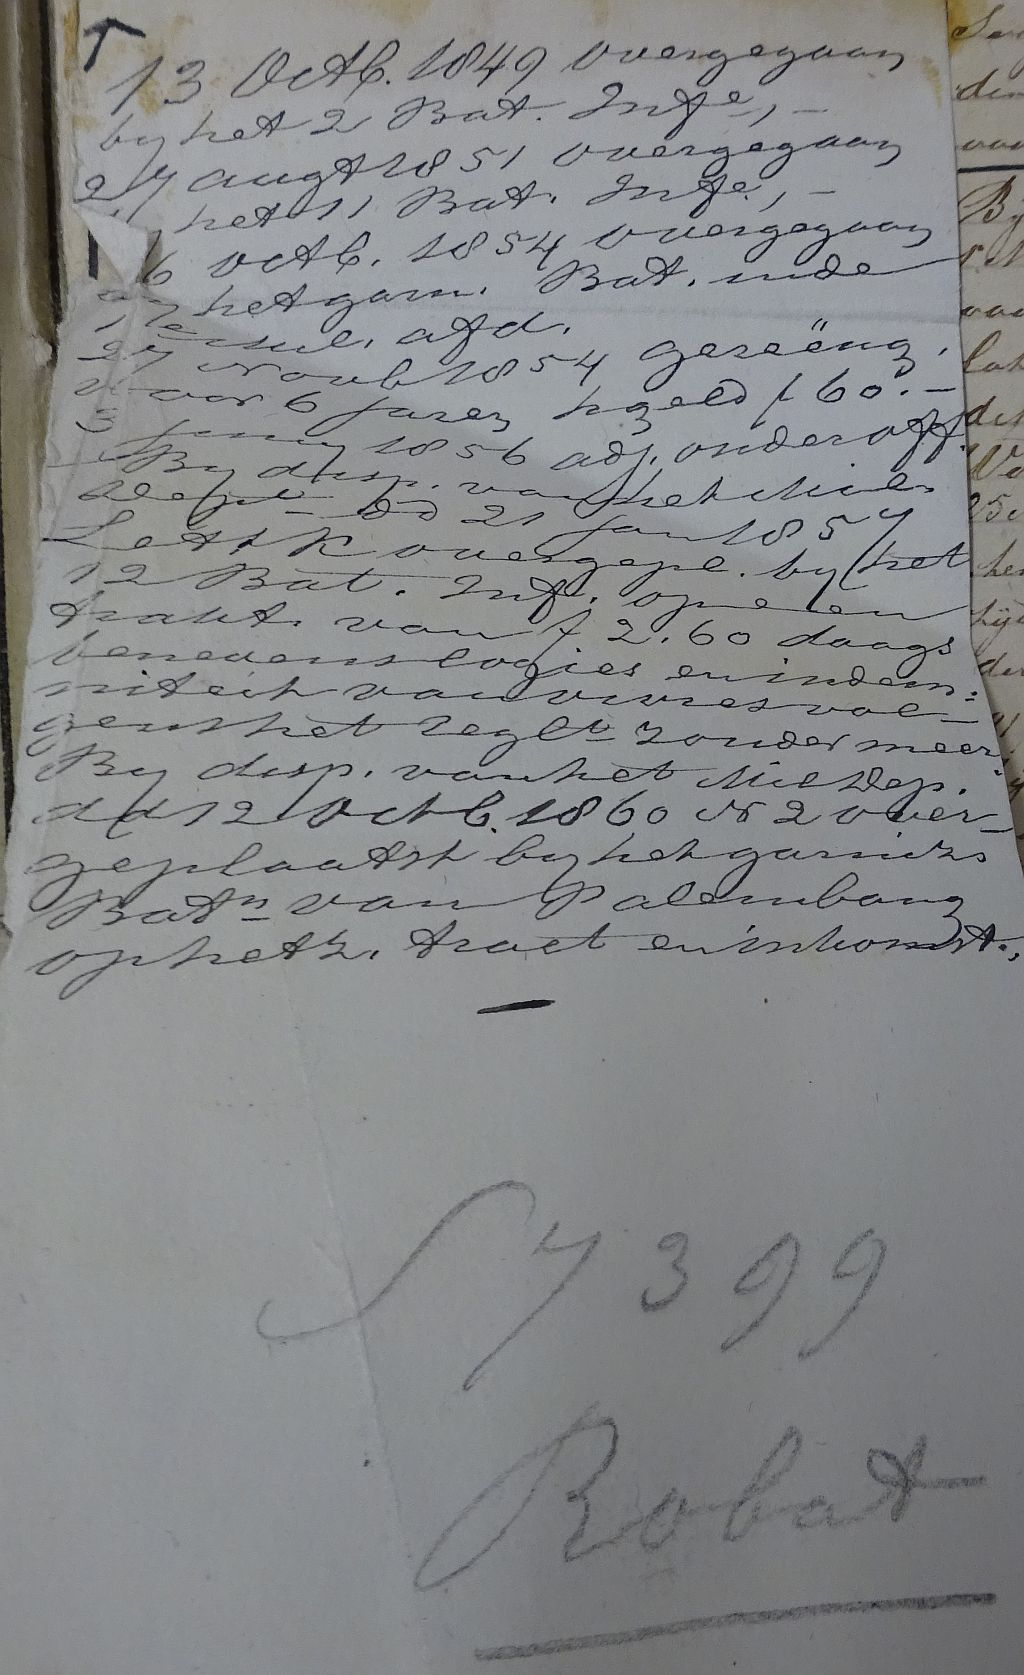 13 Octb. 1849 overgegaan
by het 2 Bat. Infe, –
27 augt 1851 overgegaan
het 11 Bat. Infe, –
6 octb. 1854 overgegaan
het garn. Bat. mde
afd.
27 novb 1854 gereëng.
voor 6 jaren hgeld f 60.–
3 juny 1856 adj. onderoff.
By disp. van het Mil.
Dept dd 21 jan 1857
Lett K overgepl. by het
12 Bat. Inf. op een
trakt. van f 2.60 daags
benevens logies en indem=
niteit van vivres vol–
gens het Reglt zonder meer.
By disp. van het Mil Dep.
dd 12 Octb. 1860 N 2 over–
geplaatst by het garnizs
Batn van Palembang
op het z. tract en inkomst.,
57399
Robat